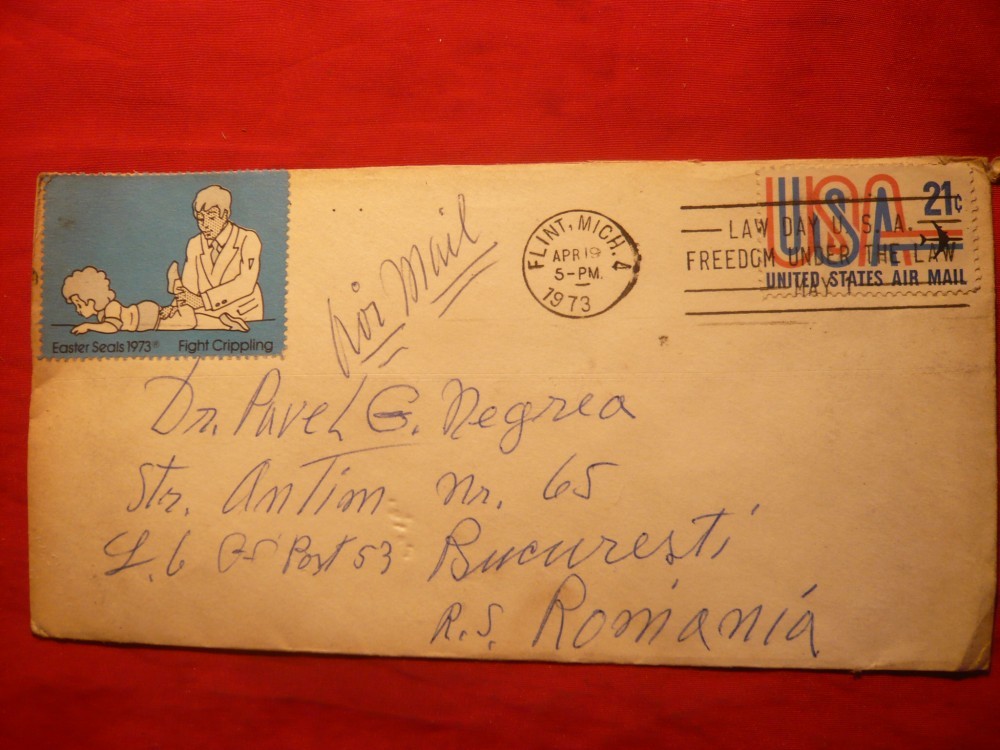 Easter Seals 1973® Fight Crippling
Air Mail
FLINT, MICH. 4
APR 19
5-PM
1973
USA 21c
UNITED STATES AIR MAIL
LAW DAY U.S.A.
FREEDOM UNDER THE LAW
MAY 1
Dr. Pavel G. Negrea
Str. Antim Nr. 65
Post 53 Bucuresti
R.S. Romania